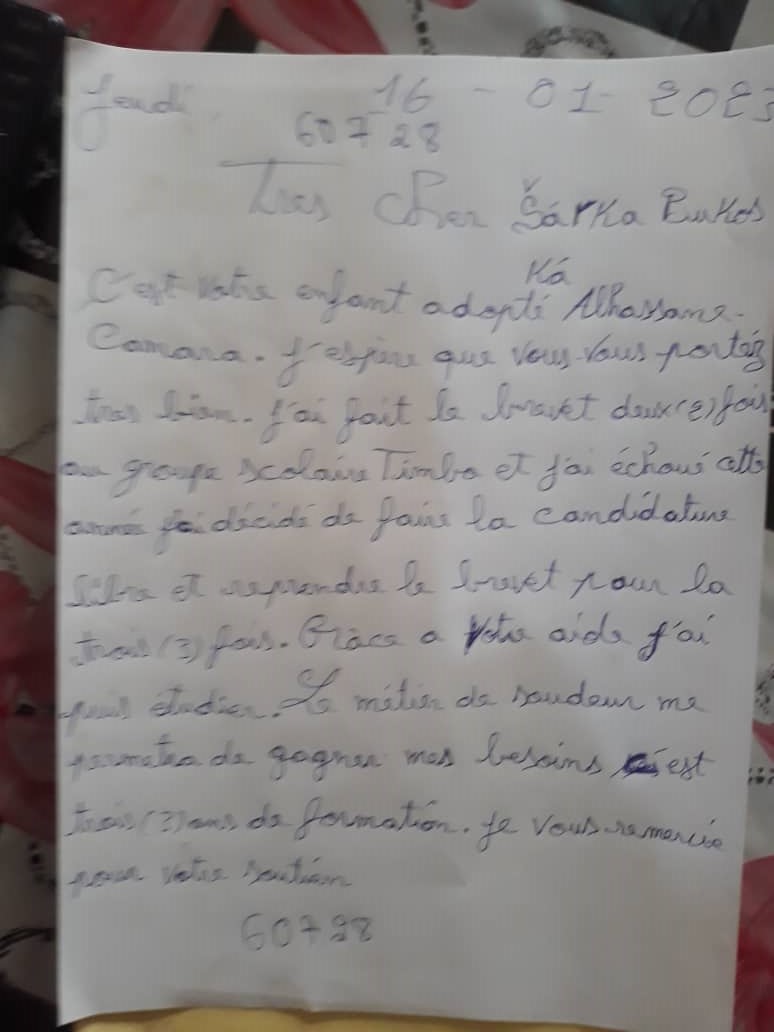 Jeudi 16 - 01 - 2023
60728
Tres Cher Šárka Bukos
Ká
C'est votre enfant adopté Alhassane-
Camara. J'espère que vous vous portéz
tres bien. J'ai fait le brevet deux (2) fois
au groupe scolaire Timbo et j'ai échoué cette
année j'ai décidé de faire la candidature
libre et reprendre le brevet pour la
trois (3) fois. Grâce a votre aide j'ai
puis étudier. Le métier de soudeur me
permetra de gagner mes besoins c'est
trois (3) ans de formation. Je vous remercie
pour votre soutien
60728